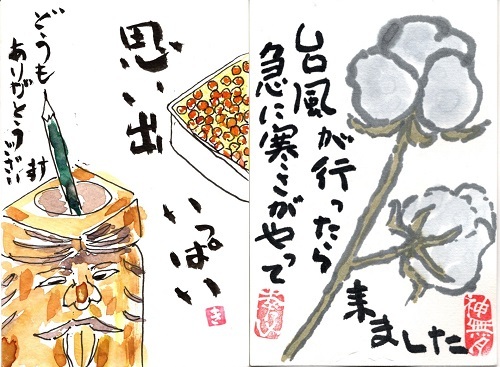 思い出
いっぱい
き
どうも
ありがとうござい
台風が行ったら
急に寒さがやって
来ました
神無月